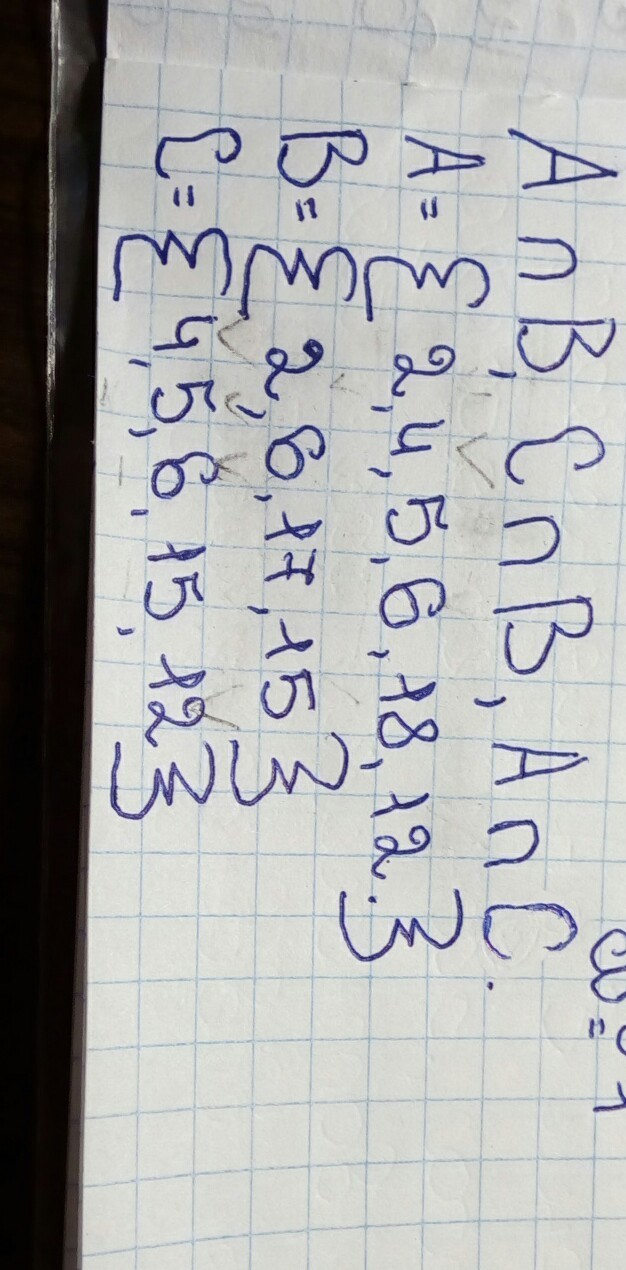 A ∩ B, C ∩ B, A ∩ C.
A = { 2, 4, 5, 6, 18, 12. }
B = { 2, 6, 17, 15 }
C = { 4, 5, 6, 15, 12 }